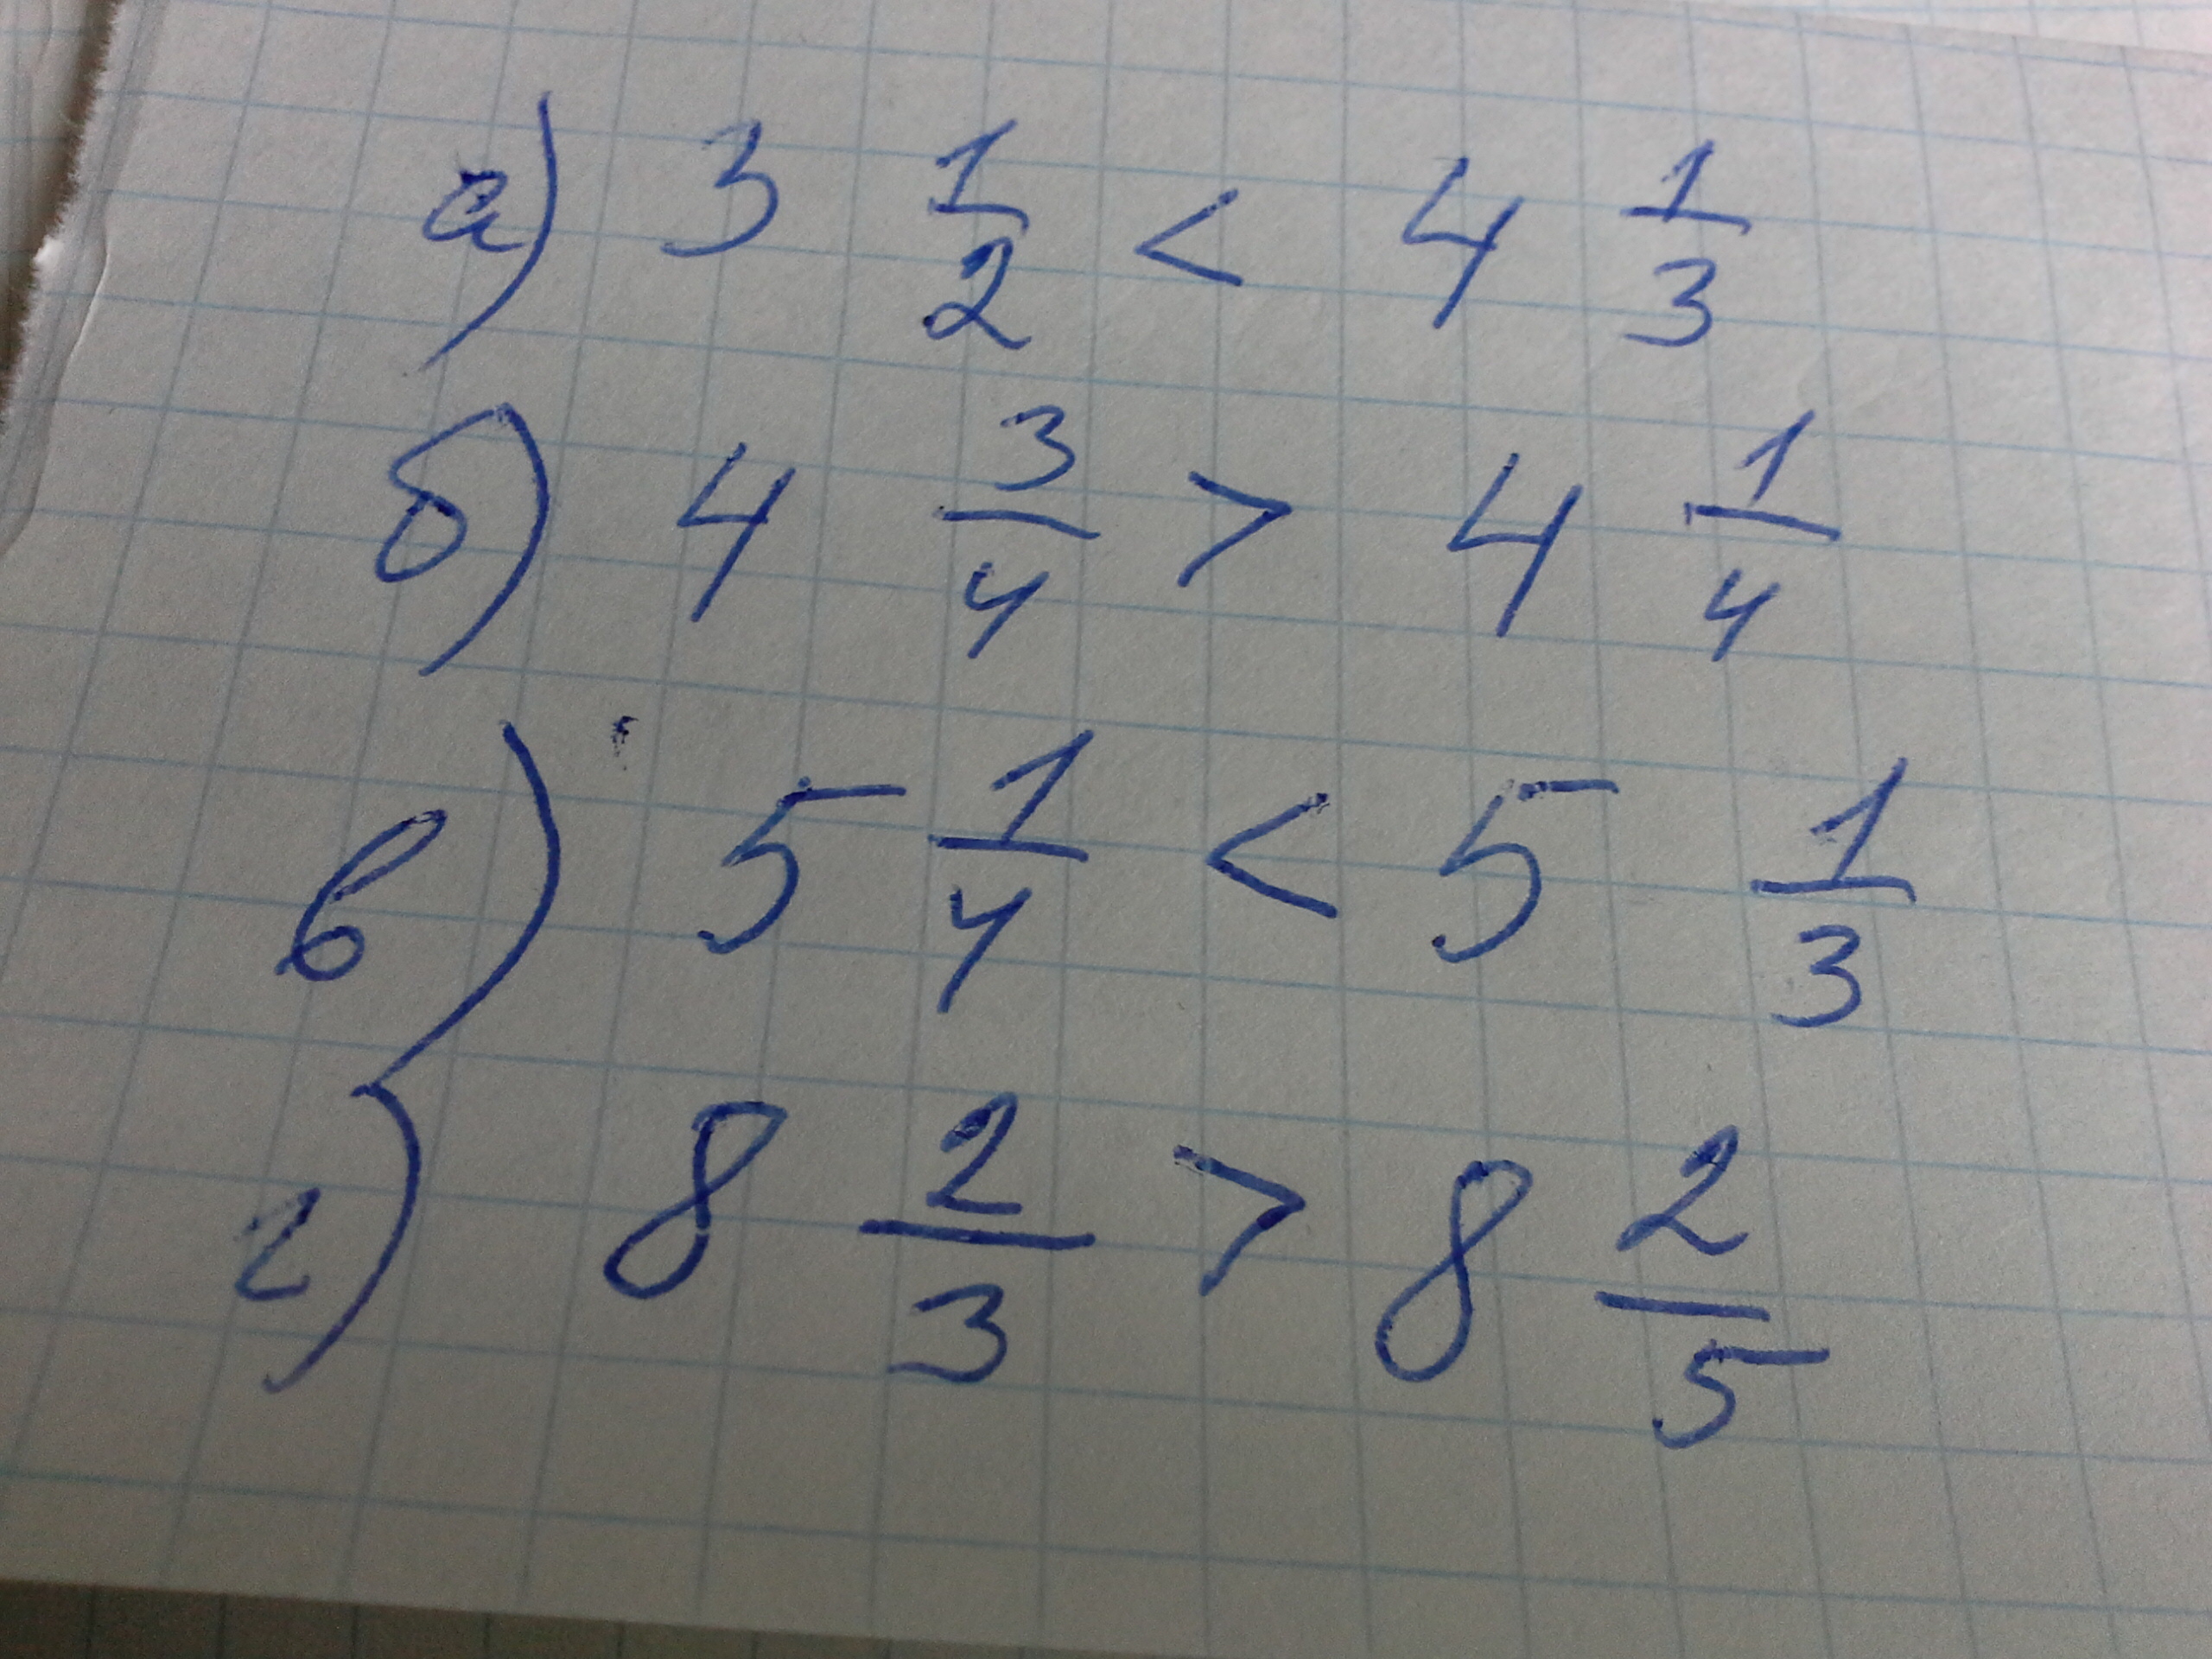 а) 3 1/2 < 4 1/3
б) 4 3/4 > 4 1/4
в) 5 1/4 < 5 1/3
г) 8 2/3 > 8 2/5